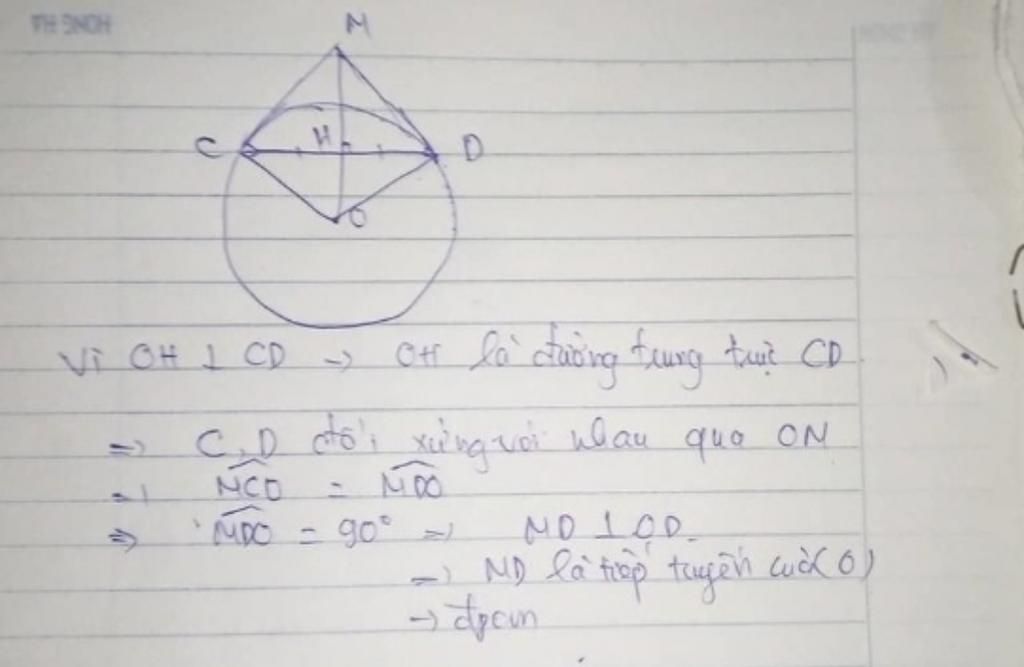 HONG HA
M
C H D
O
Vì OH ⊥ CD -> OH là đường trung trực CD
=> C, D đối xứng với nhau qua OM
=> MCO = MDO
=> MDO = 90° => MD ⊥ OD.
=> MD là tiếp tuyến của (O)
-> đpcm